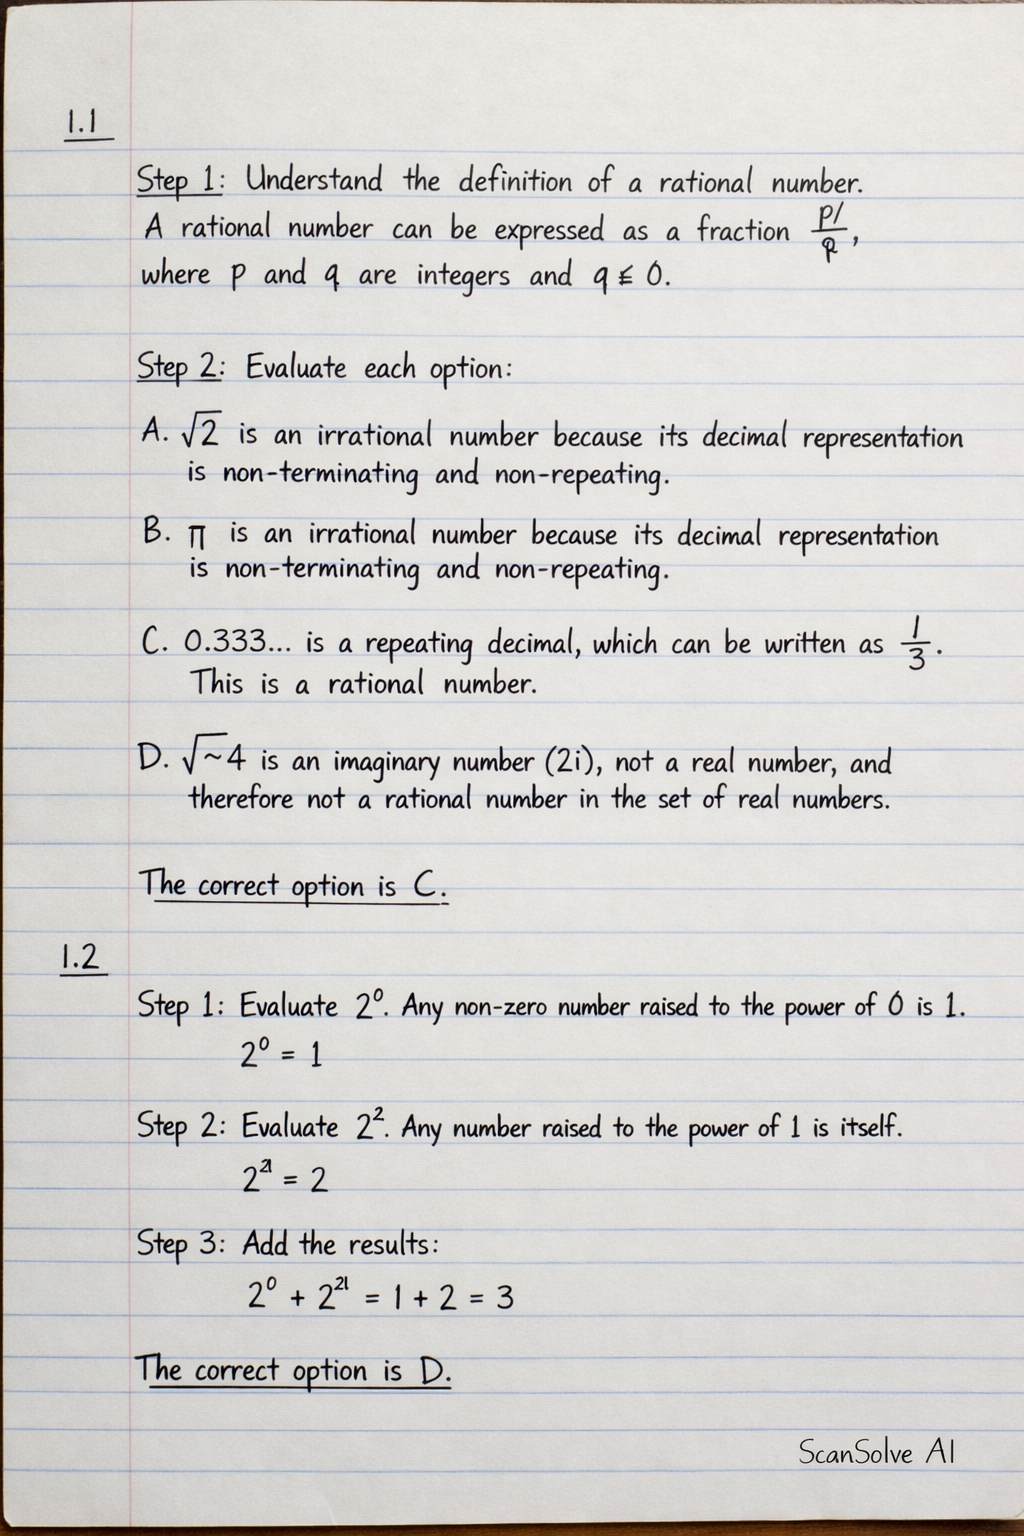 1.1
Step 1: Understand the definition of a rational number.
A rational number can be expressed as a fraction p/
where p and q are integers and q ≰ 0.
Step 2: Evaluate each option:
A. √2 is an irrational number because its decimal representation
is non-terminating and non-repeating.
B. π is an irrational number because its decimal representation
is non-terminating and non-repeating.
C. 0.333... is a repeating decimal, which can be written as 1/3.
This is a rational number.
D. √~4 is an imaginary number (2i), not a real number, and
therefore not a rational number in the set of real numbers.
The correct option is C.
1.2
Step 1: Evaluate 2⁰. Any non-zero number raised to the power of 0 is 1.
2⁰ = 1
Step 2: Evaluate 2². Any number raised to the power of 1 is itself.
2²¹ = 2
Step 3: Add the results:
2⁰ + 2²¹ = 1 + 2 = 3
The correct option is D.
ScanSolve AI